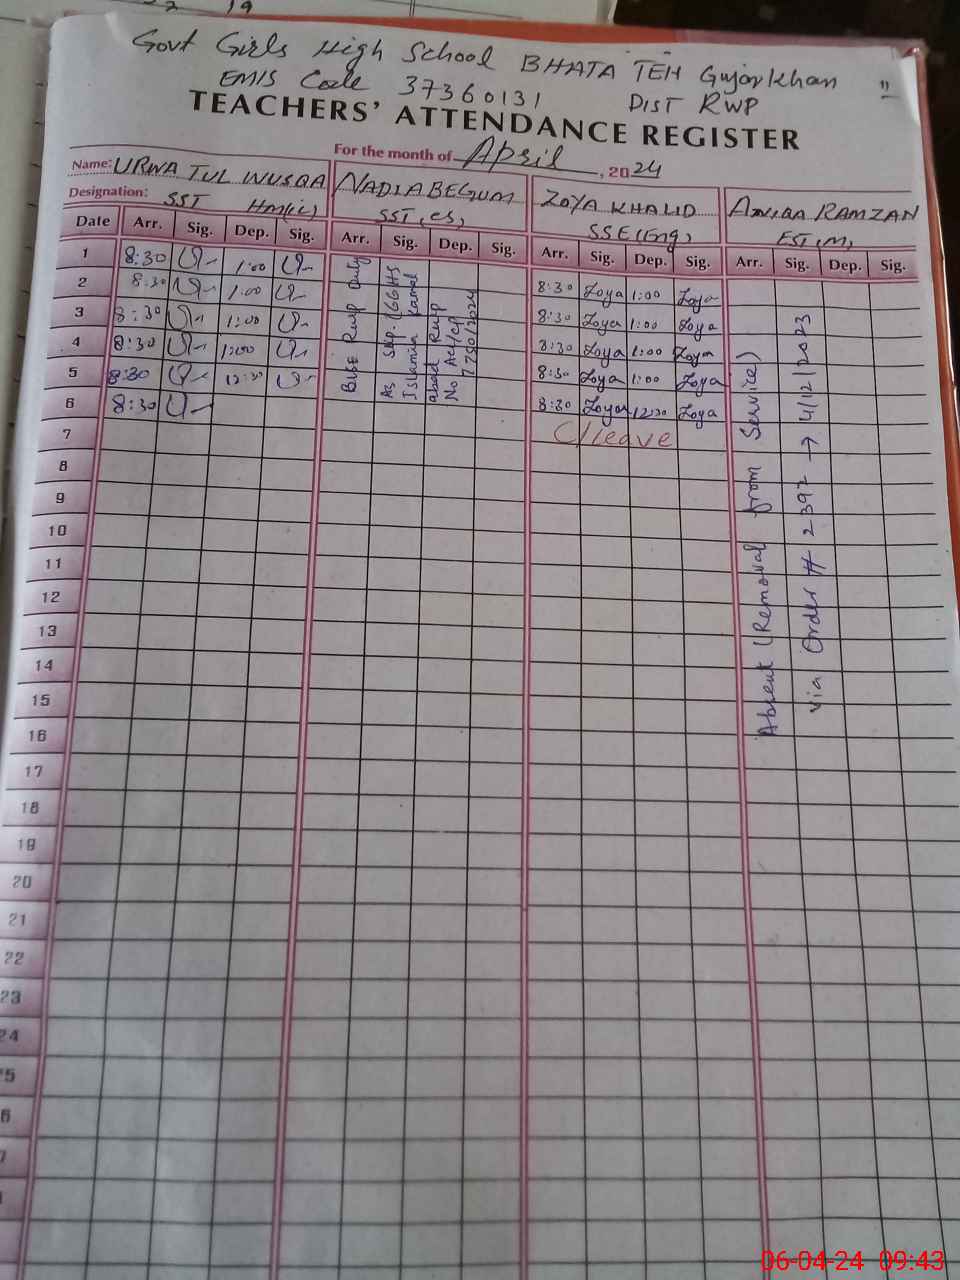 Govt Girls High School BHATA TEH Gujarkhan "
EMIS Code 37360131 DIST RWP
TEACHERS' ATTENDANCE REGISTER
For the month of April, 2024
Name: URWA TUL WUSQA NADIA BEGUM ZOYA KHALID RAMZAN
Designation: SST HM(ic) SST(CS) SSE(Eng) EST(M)
Date Arr. Sig. Dep. Sig. Arr. Sig. Dep. Sig. Arr. Sig. Dep. Sig. Arr. Sig. Dep. Sig.
1 8:30 1:00 8:30 Zoya 1:00 Zoya
2 8:30 1:00 8:30 Zoya 1:00 Zoya
3 8:30 1:00 8:30 Zoya 1:00 Zoya
4 8:30 1:00 8:30 Zoya 1:00 Zoya
5 8:30 12:30 8:30 Zoya 12:30 Zoya
6 8:30 C/leave
7
8
9
10
11
12
13
14
15
16
17
18
19
20
21
22
23
24
5
6
7
Bise Rwp Duty
As Sup. 166 HS
Islamia
Rwp
No
7750/2024
Absent (Removal from Service)
via Order # 2392 → 4/12/2023
06-04-24 09:43